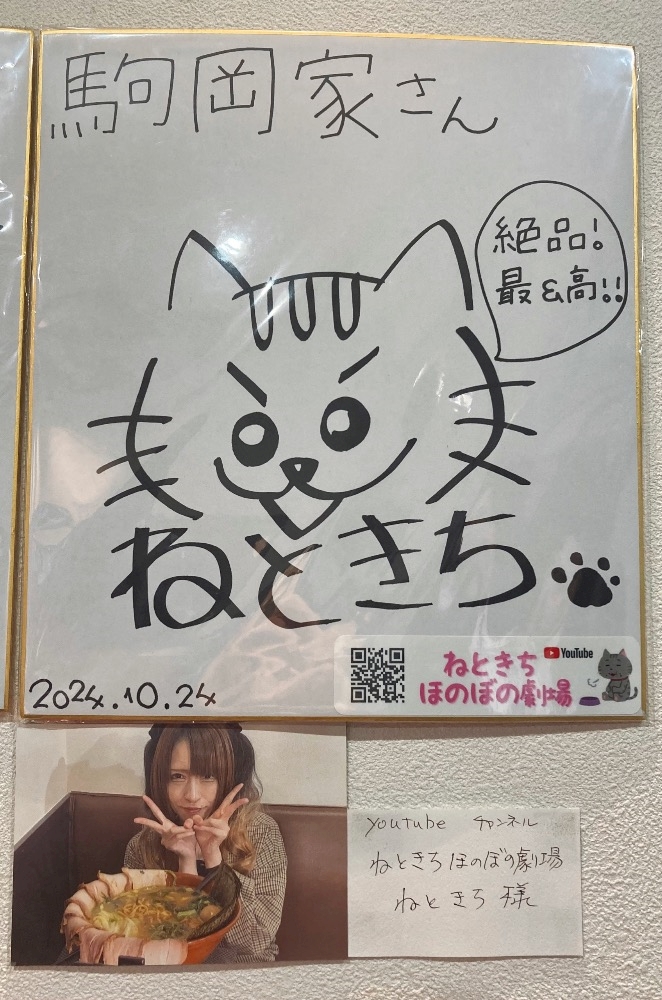 駒岡家さん
絶品!
最&高!!
ねときち
2024.10.24
YouTube
ねときち
ほのぼの劇場
youtube チャンネル
ねときちほのぼの劇場
ねときち 様